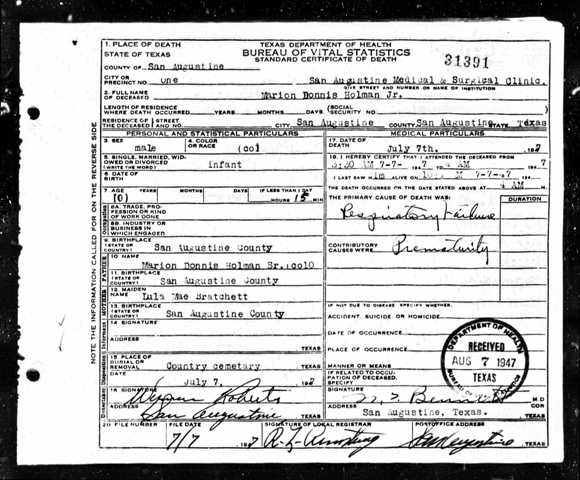 TEXAS DEPARTMENT OF HEALTH
BUREAU OF VITAL STATISTICS
STANDARD CERTIFICATE OF DEATH
31391
1. PLACE OF DEATH
STATE OF TEXAS
COUNTY OF San Augustine
CITY OR PRECINCT NO. one San Augustine Medical & Surgical Clinic.
GIVE STREET AND NUMBER OR NAME OF INSTITUTION
2. FULL NAME OF DECEASED Marion Donnis Holman Jr.
LENGTH OF RESIDENCE WHERE DEATH OCCURRED YEARS MONTHS DAYS (SOCIAL SECURITY NO.
RESIDENCE OF THE DECEASED STREET AND NO. CITY San Augustine COUNTY San Augustine STATE Texas
PERSONAL AND STATISTICAL PARTICULARS
3. SEX male 4. COLOR OR RACE (co)
5. SINGLE, MARRIED, WIDOWED OR DIVORCED (WRITE THE WORD) infant
6. DATE OF BIRTH
7. AGE YEARS MONTHS DAYS IF LESS THAN 1 DAY
(0) HOURS 15 MIN
8A. TRADE, PROFESSION OR KIND OF WORK DONE
8B. INDUSTRY OR BUSINESS IN WHICH ENGAGED
9. BIRTHPLACE (STATE OR COUNTRY) San Augustine County
FATHER
10 NAME Marion Donnis Holman Sr.
11. BIRTHPLACE (STATE OR COUNTRY) San Augustine County
MOTHER
12. MAIDEN NAME Lula Mae Bratchett
13. BIRTHPLACE (STATE OR COUNTRY) San Augustine County
14 SIGNATURE
ADDRESS TEXAS
15 PLACE OF BURIAL OR REMOVAL Country cemetary TEXAS
DATE July 7, 194
16 SIGNATURE Roberts
ADDRESS San Augustine TEXAS
MEDICAL PARTICULARS
17. DATE OF DEATH July 7th. 194
18. I HEREBY CERTIFY THAT I ATTENDED THE DECEASED FROM
AM 7-7- 194 7 TO 4 AM 194 7
I LAST SAW im ALIVE ON M 7-7-47 194
THE DEATH OCCURRED ON THE DATE STATED ABOVE AT 4 AM M.
THE PRIMARY CAUSE OF DEATH WAS: DURATION
Respiratory Failure
CONTRIBUTORY CAUSES WERE: Prematurity
IF NOT DUE TO DISEASE, SPECIFY WHETHER:
ACCIDENT, SUICIDE OR HOMICIDE
DATE OF OCCURRENCE
PLACE OF OCCURRENCE
MANNER OR MEANS
IF RELATED TO OCCUPATION OF DECEASED, SPECIFY
SIGNATURE M.D.
ADDRESS San Augustine, Texas. COR
DEPARTMENT OF HEALTH
RECEIVED
AUG 7 1947
TEXAS
20 FILE NUMBER FILE DATE SIGNATURE OF LOCAL REGISTRAR POSTOFFICE ADDRESS
7/7 194 San Augustine TEXAS
NOTE THE INFORMATION CALLED FOR ON THE REVERSE SIDE